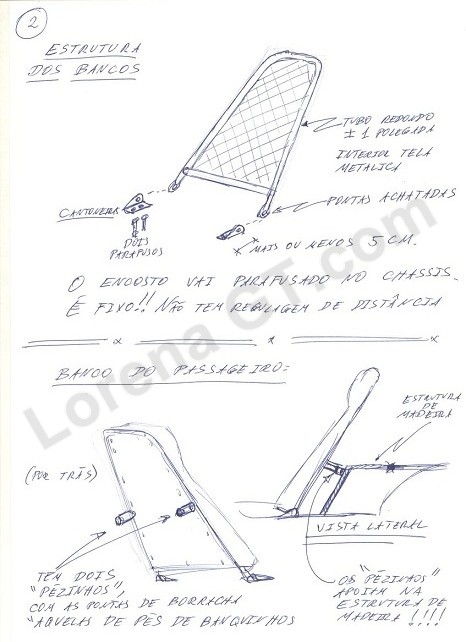 2
ESTRUTURA
DOS BANCOS
TUBO REDONDO
± 1 POLEGADA
INTERIOR TELA
METALICA
PONTAS ACHATADAS
CANTONEIRA
DOIS
PARAFUSOS
MAIS OU MENOS 5 CM.
O ENCOSTO VAI PARAFUSADO NO CHASSIS.
É FIXO!! NÃO TEM REGULAGEM DE DISTÂNCIA
BANCO DO PASSAGEIRO:
ESTRUTURA
DE
MADEIRA
(POR TRÁS)
VISTA LATERAL
TEM DOIS
"PÉZINHOS",
COM AS PONTAS DE BORRACHA
AQUELAS DE PÉS DE BANQUINHOS
OS "PÉZINHOS"
APOIAM NA
ESTRUTURA DE
MADEIRA !!!!
Lorena GT.com